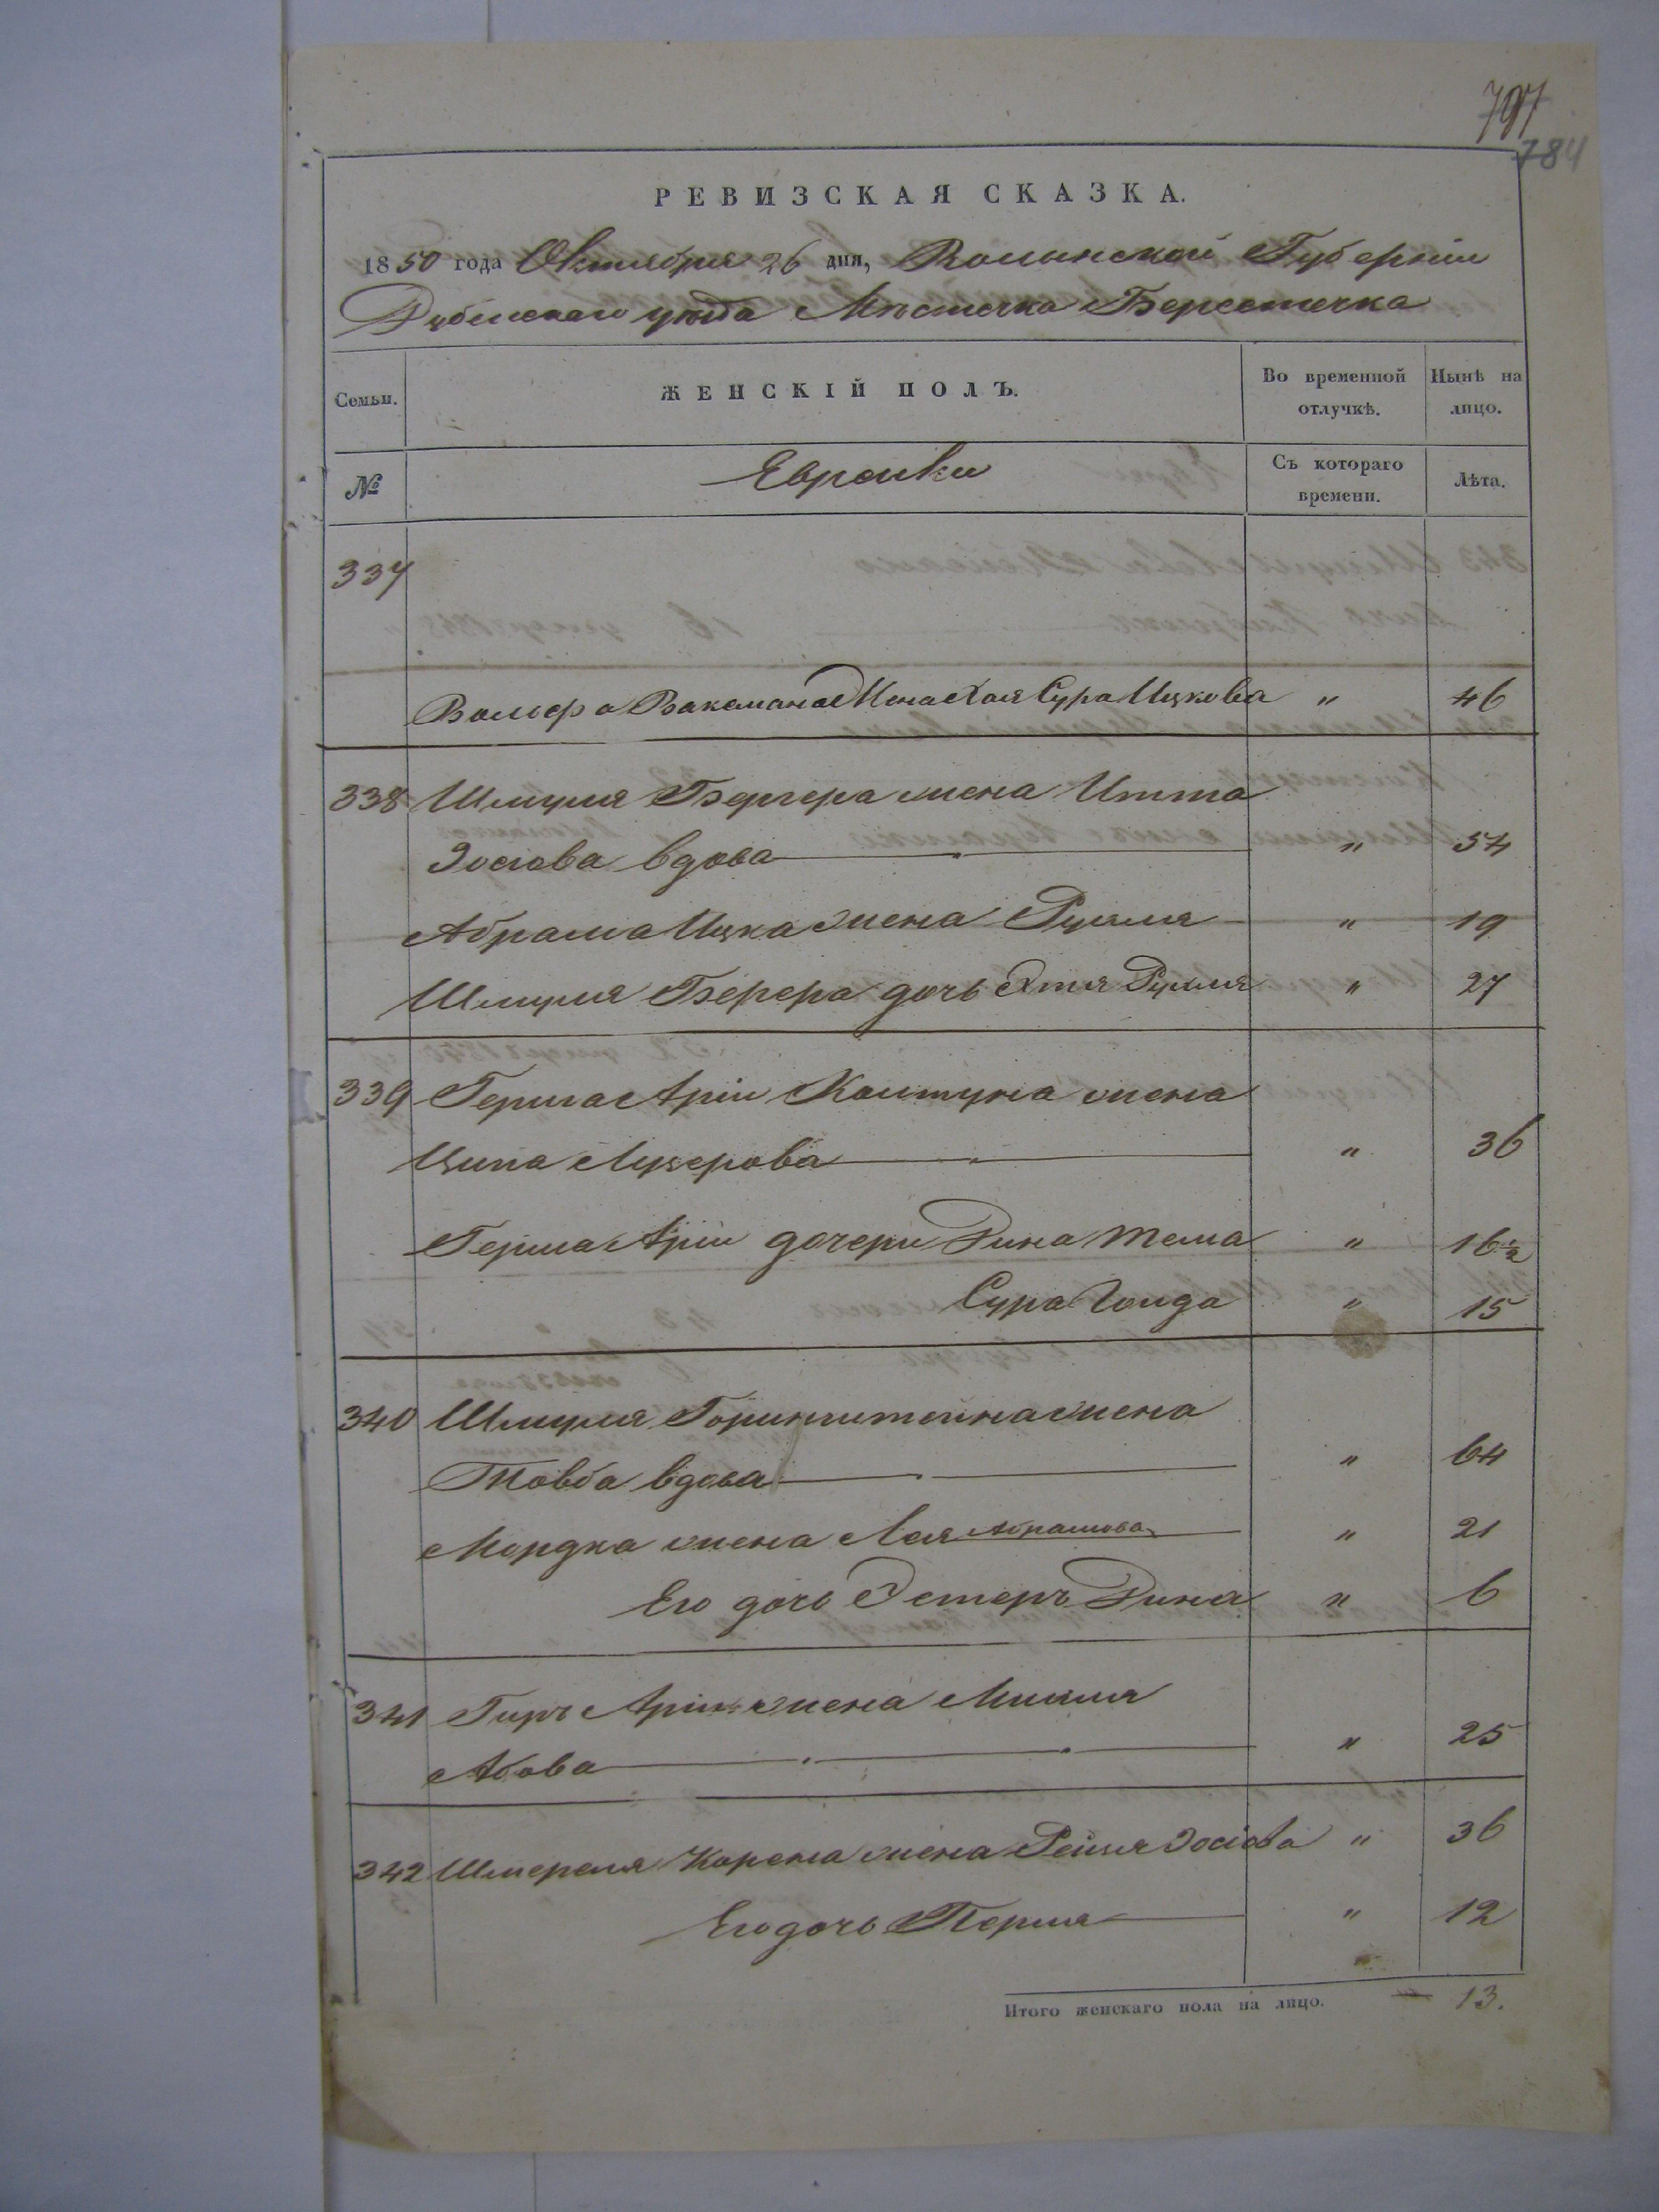 797
784
РЕВИЗСКАЯ СКАЗКА.
1850 года Октября 26 дня, Волынской Губерніи
Дубенскаго уѣзда Мѣстечка Берестечка
Семьи. ЖЕНСКІЙ ПОЛЪ. Во временной отлучкѣ. Нынѣ на лицо.
№ Еврейки Съ котораго времени. Лѣта.
337
Вольфа Ваксмана жена Хая Сура Ицкова " 46
338 Шмуля Бергера жена Итта
Іосіова вдова " 54
Абрама Ицка жена Рухля " 19
Шмуля Бергера дочь Этя Рухля " 27
339 Герша Арін Колтуна жена
Ципа Лузерова " 36
Герша Арін дочери Дина Тема " 16½
Сура Голда " 15
340 Шмуля Горинштейна жена
Товба вдова " 64
Мордка жена Лея Абрамова " 21
Его дочь Эстеръ Дина " 6
341 Гиръ жена Михля
Абова " 25
342 Шмереля Корена жена Рейзя Іосіова " 36
Его дочь Перля " 12
Итого женскаго пола на лицо. — 13.